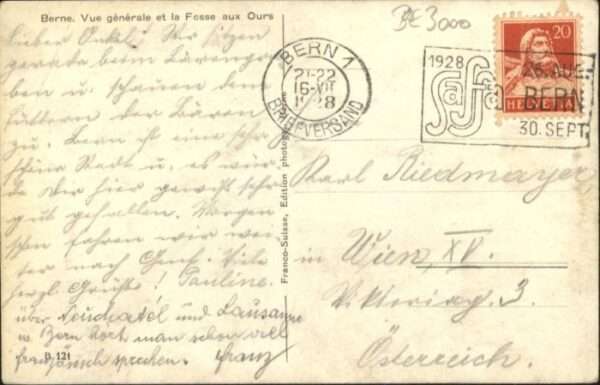 Berne. Vue générale et la Fosse aux Ours
Lieber Onkel! Wir sitzen
gerade beim Bärengra-
ben u. schauen dem
Füttern der Bären
zu. Bern ist eine sehr
schöne Stadt u. es würde
Dir hier gewiß sehr
gut gefallen. Morgen
fahren wir wei-
ter nach Genf. Viele
herzl. Grüße! Pauline.
über Neuchatél und Lausanne
in Bern hört man schon viel
französisch sprechen. Franz
B. 121
Franco-Suisse, Edition photogr.
BE 3000
BERN 1
21-22
16-VII
1928
BRIEFVERSAND
1928
Saffa
26. AUG.
BERN
30. SEPT.
20
HELVETIA
Karl Riedmayer
in Wien, XV.
Viktoriag. 3.
Österreich.